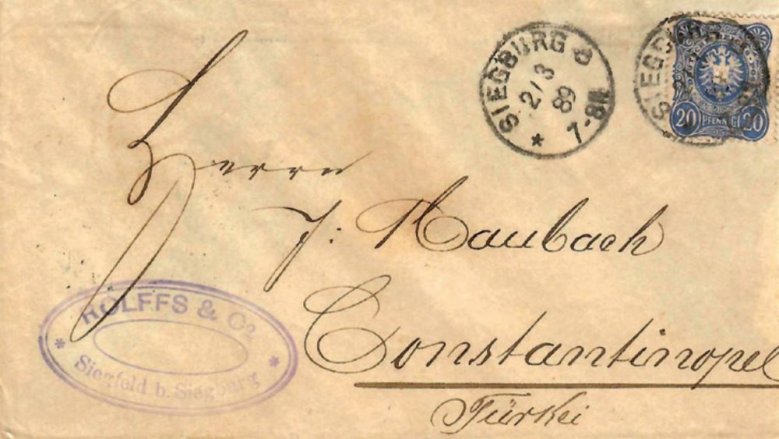 SIEGBURG
2/3
89
7-8N
*
SIEGBURG
20 PFENNIG 20
Herrn
J: Maubach
Constantinopel
Türkei
ROLFFS & Co
* *
Siegfeld b. Siegburg